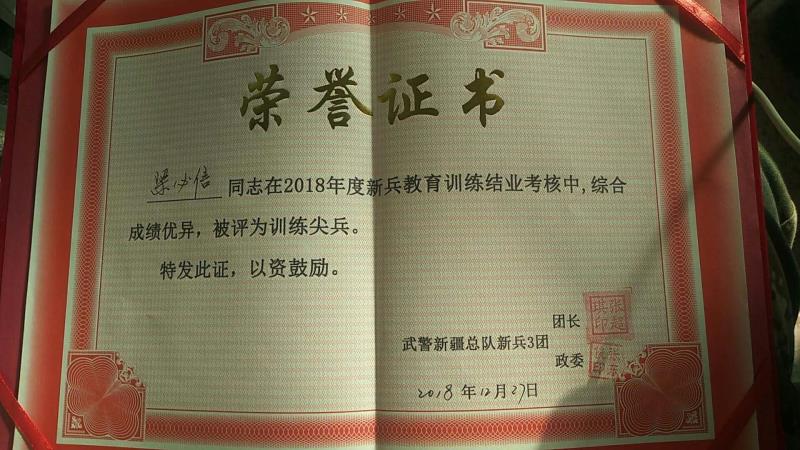 荣誉证书
梁必倍 同志在2018年度新兵教育训练结业考核中,综合
成绩优异，被评为训练尖兵。
特发此证，以资鼓励。
团长
武警新疆总队新兵3团
政委
2018年12月27日